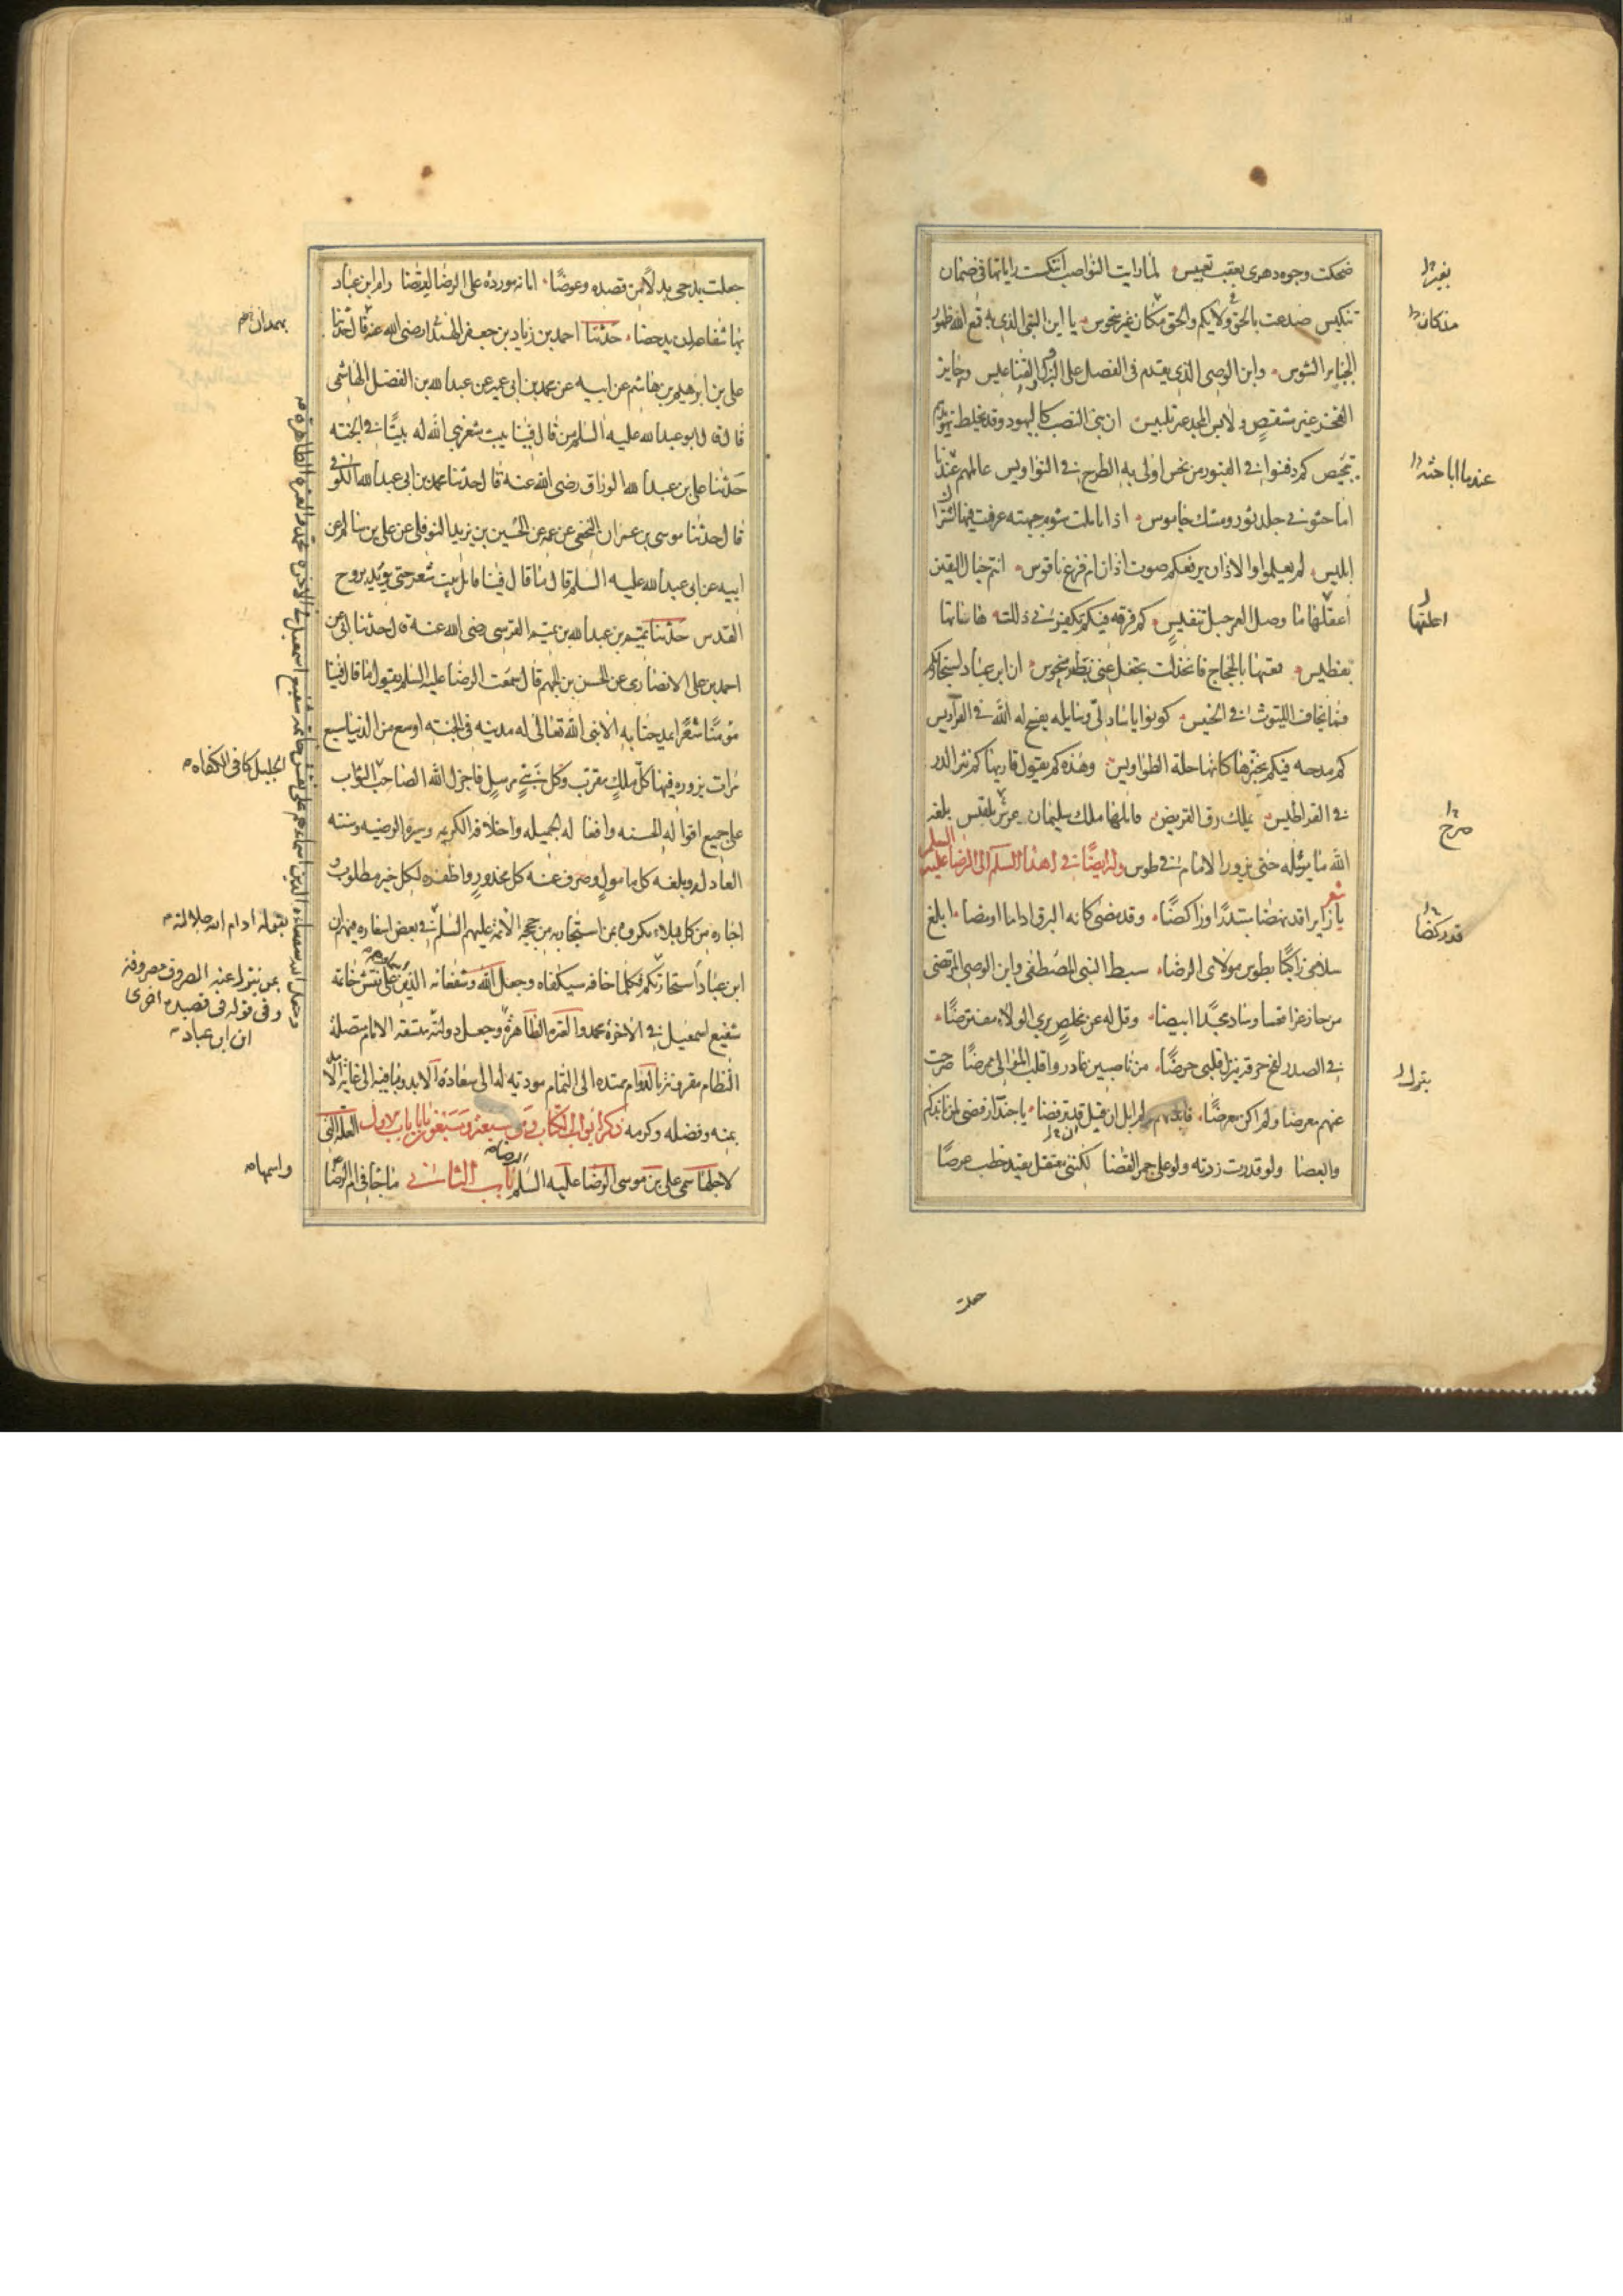 ضحكت وجوه دهرى بعقب تعبيس لما رايت النواصب انتكست راياتها فى ضمان
تنكيس صدعت بالحق ولايكم والحق مكان غير منحوس يا ابن النبى الذى به قمع الله ظهور
الجبابر الشوس وابن الوصى الذى يقدم فى الفضل على البزل القناعيس وحايز
الفخر غير منتقص ولابس المجد غير تلبيس ان بنى النصب كاليهود وقد يخلط تهويدهم
تمجيس كم دفنوا فى القبور من نجس اولى به الطرح فى النواويس عالمهم عندنا
اما حثه فى جلد ثور ومسك جاموس اذا تاملت شوم جبهته عرفت فيها اشتراك
ابليس لم يعلموا والاذان يرفعكم صوت اذان ام قرع ناقوس انتم حبال اليقين
اعقلها ما وصل العمر حبل تنفيس كم فرقة فيكم تكفرنى ذللت هاماتها
بفطيس قمعتها بالحجاج فانخذلت تجفل عنى بطير منحوس ان ابن عباد استجار بكم
فما يخاف الليوث فى الخيس كونوا يا سادتى وسايله يفسح له الله فى الفراديس
كم مدحه فيكم يحبرها كانها حلة الطواويس وهذه كم يقول قاريها كم نثر الدر
فى القراطيس يملك رق القريض قايلها ملك سليمان عرش بلقيس بلغه
الله ما يومله حتى يزور الامام فى طوس وله ايضا فى اهداء السلم الى الرضا عليه السلم
شعر
يا زايرا قد نهضا مبتدرا وراكضا وقد مضى كانه البرق اذا ما اومضا ابلغ
سلامى زاكيا بطوس مولاى الرضا سبط النبى المصطفى وابن الوصى المرتضى
من حاز عزا اقعسا وشاد مجدا ابيضا وقل له عن مخلص يرى الولاء مفترضا
فى الصدر لفح حرقة يترك قلبى حرضا من ناصبين غادروا قلب الموالى ممرضا صرحت
عنهم معرضا ولم اكن معرضا نابذتهم ولم ابل ان قيل قد ترفضا يا حبذا رفضى لمن نابذكم
وابغضا ولو قدرت زرته ولو على جمر الغضا لكننى معتقل بقيد خطب عرضا
بغير
مكان
عندما اباحثه
احلتها
صرح
قد ركضا
يترك
جعلت
جعلت مدحى بدلا من قصده وعوضا امانة موردة على الرضا ليرتضا رام ابن عباد
بها شفاعة لن يدحضا حدثنا احمد بن زياد بن جعفر الهمدانى رضى الله عنه قال حدثنا
على بن ابرهيم بن هاشم عن ابيه عن محمد بن ابى عمير عن عبد الله بن الفضل الهاشمى
قال قال ابو عبد الله عليه السلم من قال فينا بيت شعر بنى الله له بيتا فى الجنه
حدثنا على بن عبد الله الوراق رضى الله عنه قال حدثنا محمد بن ابى عبد الله الكوفى
قال حدثنا موسى بن عمران النخعى عن عمه عن الحسين بن يزيد النوفلى عن على بن سالم عن
ابيه عن ابى عبد الله عليه السلم قال ما قال فينا قايل بيت شعر حتى يويد بروح
القدس حدثنا تميم بن عبد الله بن تميم القرشى رضى الله عنه قال حدثنا ابى عن
احمد بن على الانصارى عن الحسن بن الجهم قال سمعت الرضا عليه السلم يقول ما قال فينا
مومنا شعرا يمدحنا به الا بنى الله تعالى له مدينه فى الجنه اوسع من الدنيا سبع
مرات يزوره فيها كل ملك مقرب وكل نبى مرسل فاجزل الله الصاحب الثواب
على جميع اقواله الحسنه وافعاله الجميله واخلاقه الكريمه وسيرة الرضيه وسنته
العادله وبلغه كل مامول وصرف عنه كل محذور واظفره بكل خير مطلوب و
اجاره من كل بلاء ومكروه بمن استجار به من حججه الائمة عليهم السلم فى بعض اشعاره فيهم ان
ابن عباد استجار بكم فكلما خافه سيكفاه وجعل الله وشفعائه الذين على نقش خاتمه
شفيع اسمعيل فى الاخرة محمد والعترة الطاهرة وجعل دولته متسقة الايام متصلة
النظام مقرونة بالدوام ممتده الى التمام موديه له الى سعادة الابد وباقية الى غاية الامد
بمنه وفضله وكرمه ذكر ابواب الكتاب وهى سبعة وسبعون بابا باب الاول العلة التى
لاجلها سمى على بن موسى الرضا عليه السلم باب الثانى ما جا فى ام الرضا
الرضا
بهمدان
الجليل كافى الكفاه
بقوله ادام الله جلالته
بمن تزول عنه الصروف مصروفة
وفى قوله فى قصيده اخرى
ان ابن عباد
واسمها
وجعل الله شفعاءه الذين اسماءهم على نقش خاتمه شفيع اسمعيل فى الاخرة محمد والعترة الطاهرة